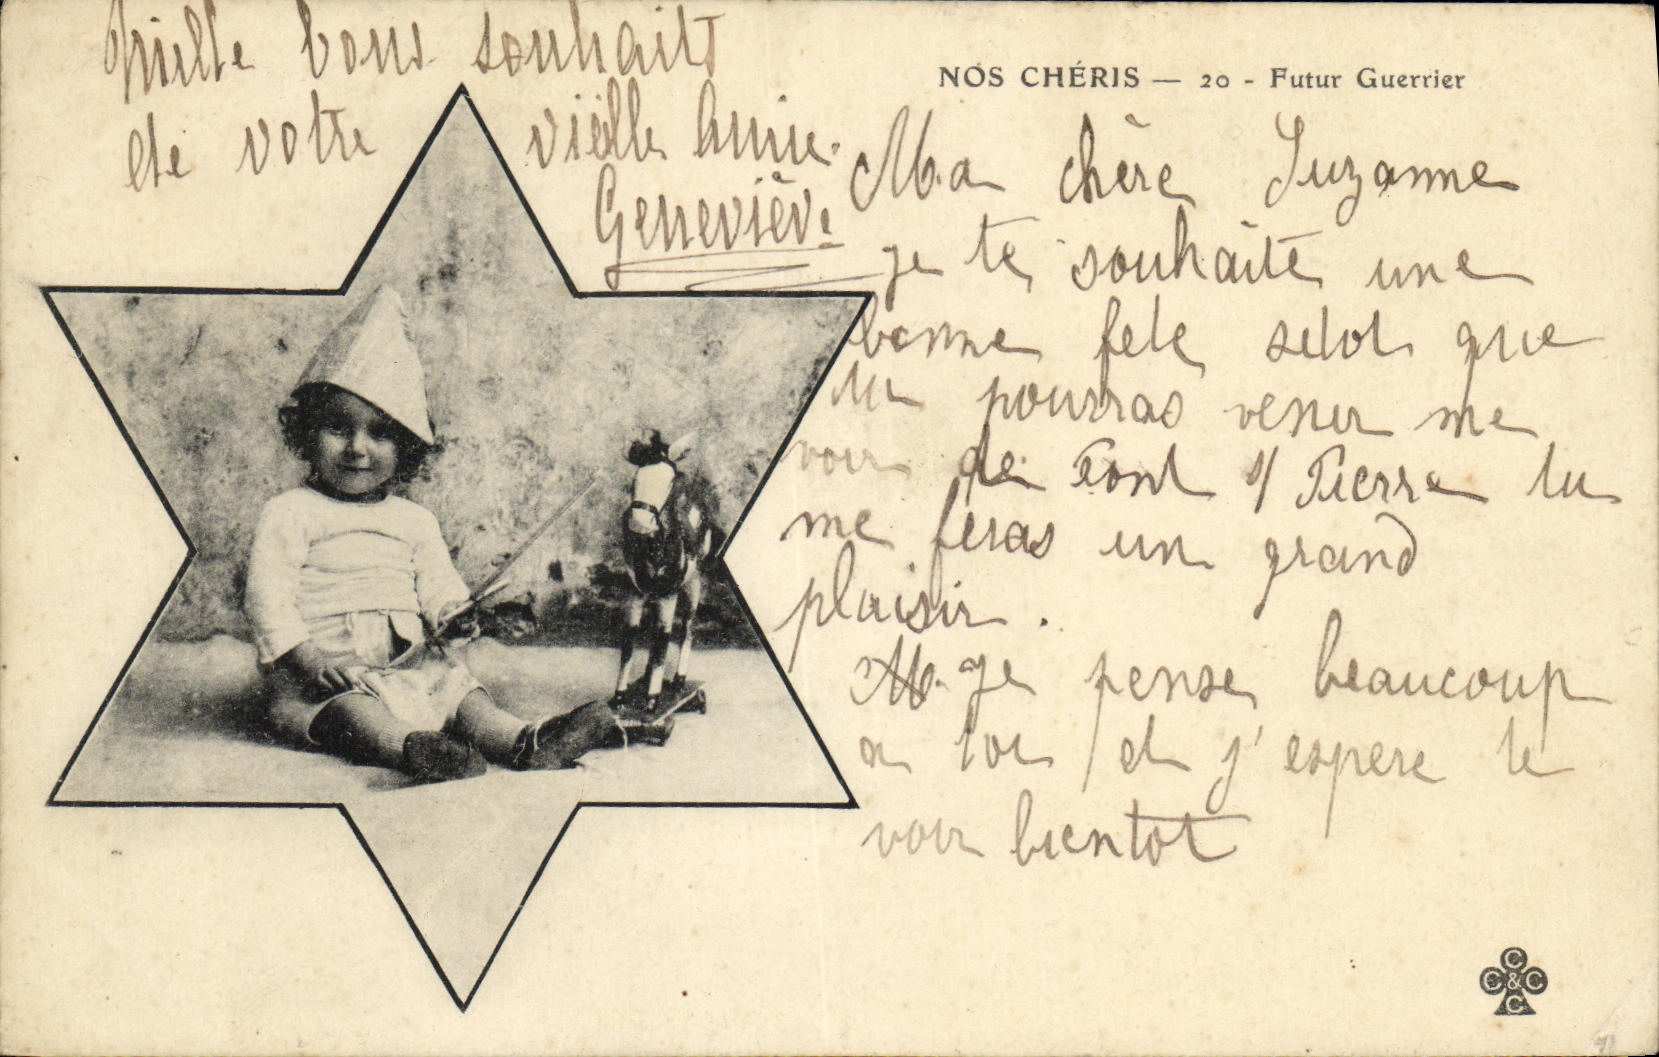 Mille bons souhaits
de votre vieille Amie.
Geneviève
NOS CHÉRIS — 20 - Futur Guerrier
Ma chère Suzanne
je te souhaite une
bonne fete que
tu pourras venir me
voir de Font s/ Tierre tu
me feras un grand
plaisir.
Je pense beaucoup
a toi et j'espere te
voir bientot
C
C & C
C